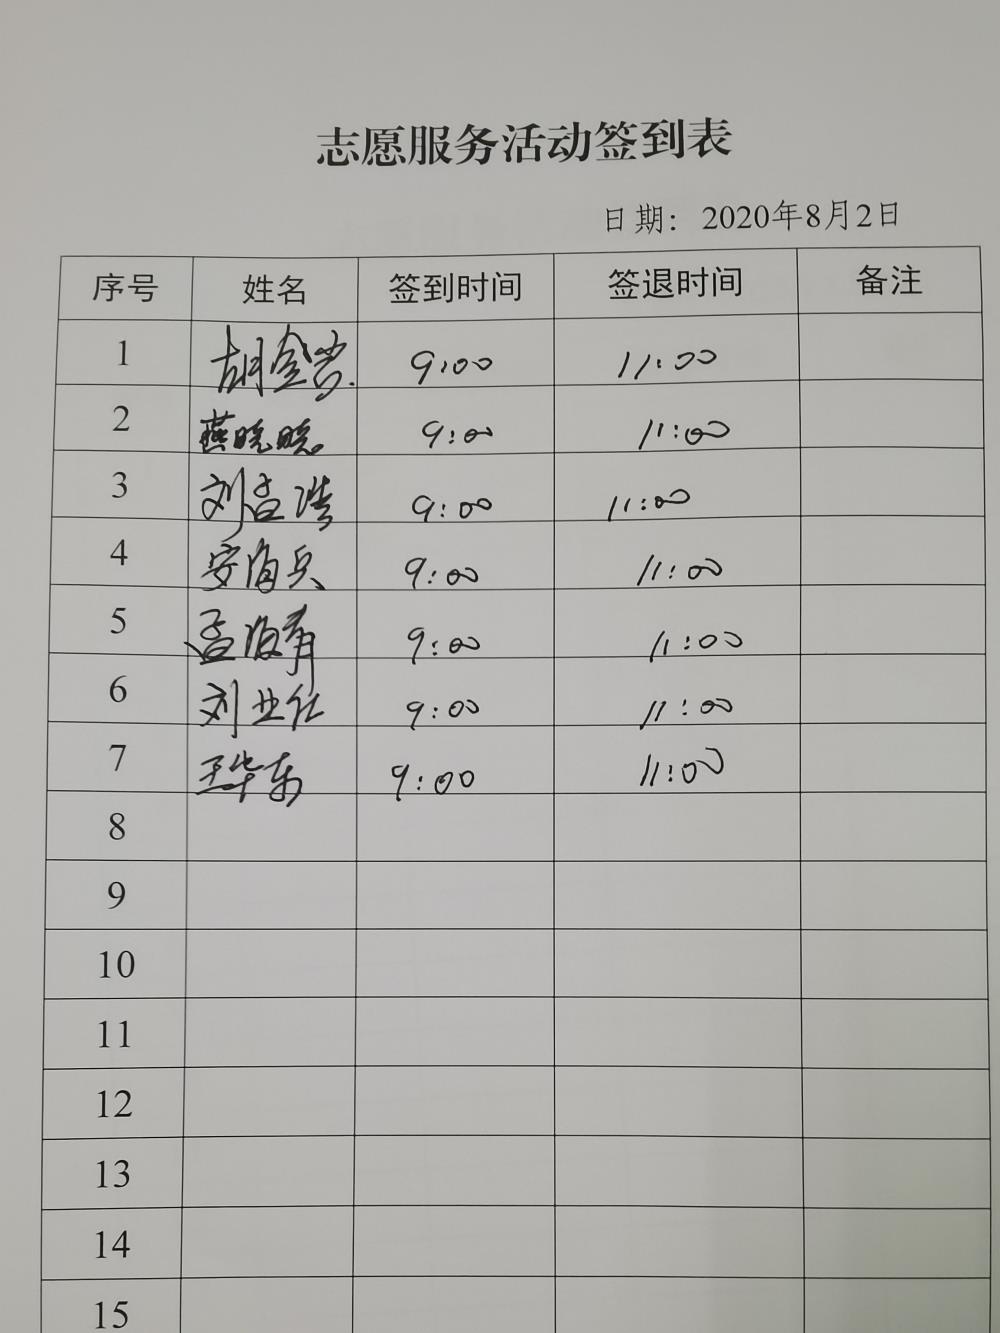 志愿服务活动签到表
日期：2020年8月2日
序号 姓名 签到时间 签退时间 备注
1 胡金 9:00 11:00
2 燕晓晓 9:00 11:00
3 刘吉浩 9:00 11:00
4 安海兵 9:00 11:00
5 孟海有 9:00 11:00
6 刘业仕 9:00 11:00
7 王华东 9:00 11:00
8
9
10
11
12
13
14
15